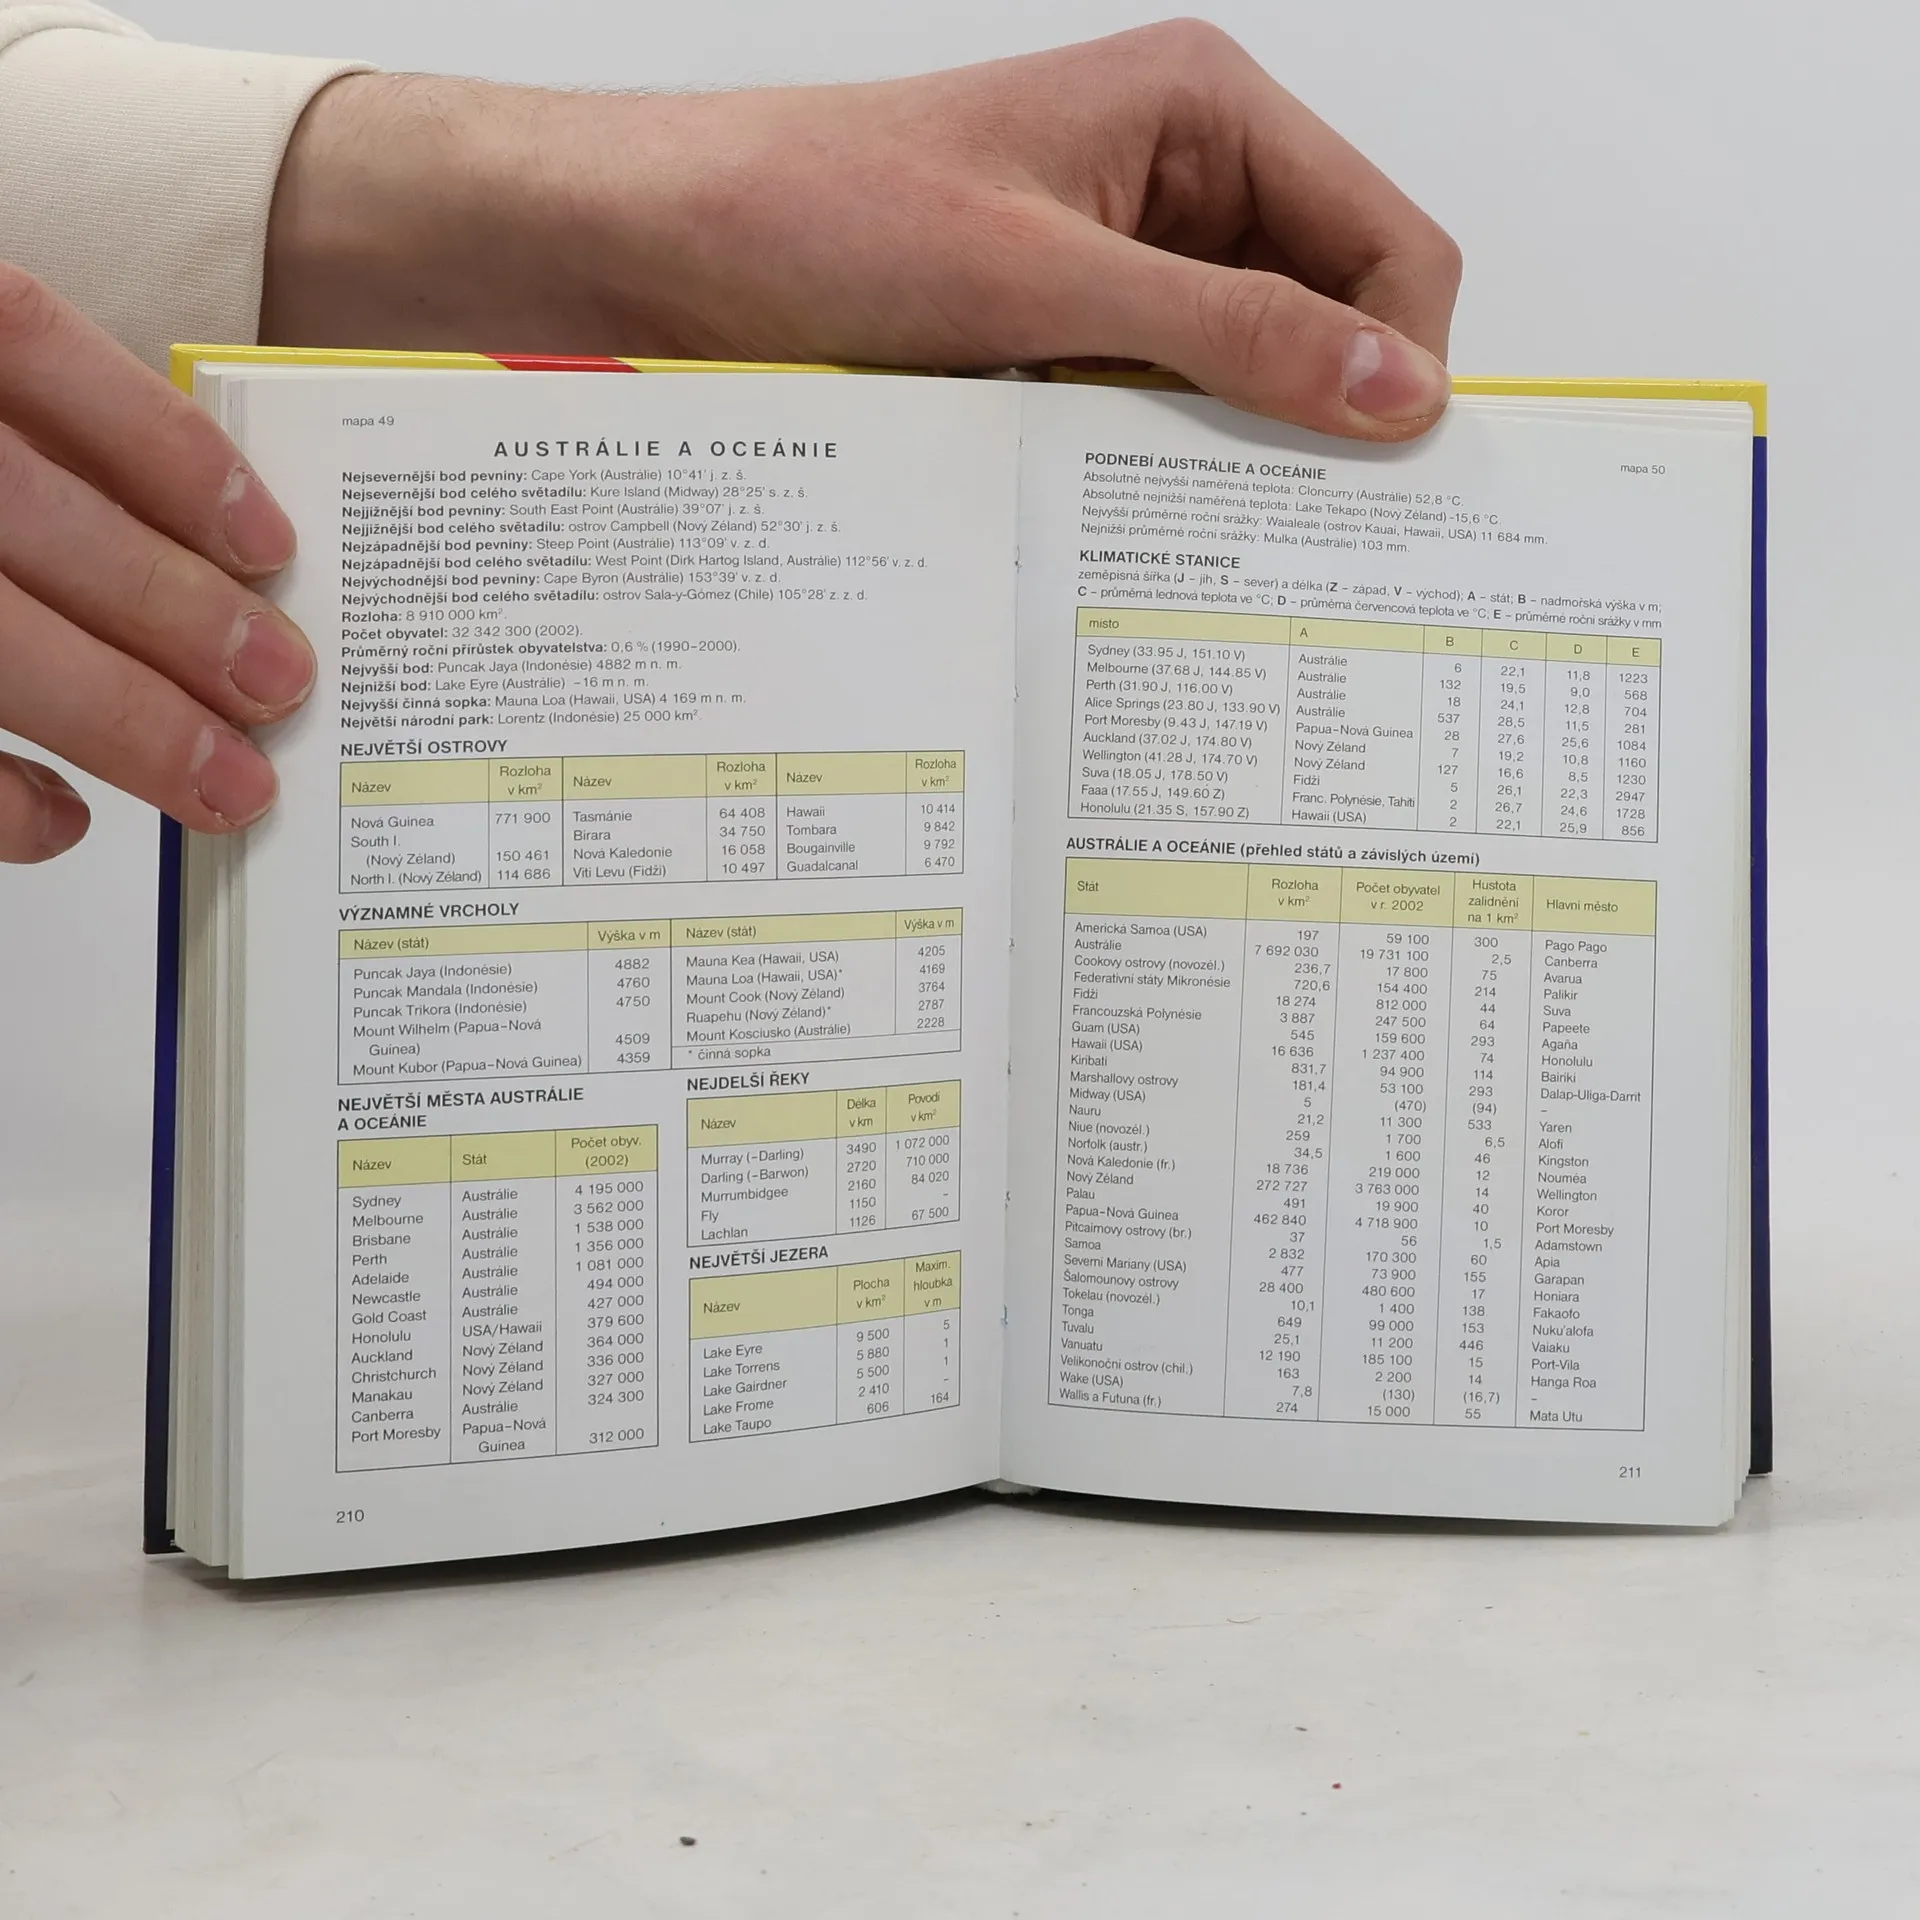 mapa 49
AUSTRÁLIE A OCEÁNIE
Nejsevernější bod pevniny: Cape York (Austrálie) 10°41' j. z. š.
Nejsevernější bod celého světadílu: Kure Island (Midway) 28°25' s. z. š.
Nejjižnější bod pevniny: South East Point (Austrálie) 39°07' j. z. š.
Nejjižnější bod celého světadílu: ostrov Campbell (Nový Zéland) 52°30' j. z. š.
Nejzápadnější bod pevniny: Steep Point (Austrálie) 113°09' v. z. d.
Nejzápadnější bod celého světadílu: West Point (Dirk Hartog Island, Austrálie) 112°56' v. z. d.
Nejvýchodnější bod pevniny: Cape Byron (Austrálie) 153°39' v. z. d.
Nejvýchodnější bod celého světadílu: ostrov Sala-y-Gómez (Chile) 105°28' z. z. d.
Rozloha: 8 910 000 km².
Počet obyvatel: 32 342 300 (2002).
Průměrný roční přírůstek obyvatelstva: 0,6 % (1990–2000).
Nejvyšší bod: Puncak Jaya (Indonésie) 4882 m n. m.
Nejnižší bod: Lake Eyre (Austrálie) –16 m n. m.
Nejvyšší činná sopka: Mauna Loa (Hawaii, USA) 4 169 m n. m.
Největší národní park: Lorentz (Indonésie) 25 000 km².
NEJVĚTŠÍ OSTROVY
Název Rozloha v km² Název Rozloha v km² Název Rozloha v km²
Nová Guinea 771 900 Tasmánie 64 408 Hawaii 10 414
South I. Birara 34 750 Tombara 9 842
(Nový Zéland) 150 461 Nová Kaledonie 16 058 Bougainville 9 792
North I. (Nový Zéland) 114 686 Viti Levu (Fidži) 10 497 Guadalcanal 6 470
VÝZNAMNÉ VRCHOLY
Název (stát) Výška v m Název (stát) Výška v m
Puncak Jaya (Indonésie) 4882 Mauna Kea (Hawaii, USA) 4205
Puncak Mandala (Indonésie) 4760 Mauna Loa (Hawaii, USA)* 4169
Puncak Trikora (Indonésie) 4750 Mount Cook (Nový Zéland) 3764
Mount Wilhelm (Papua–Nová Ruapehu (Nový Zéland)* 2787
Guinea) 4509 Mount Kosciusko (Austrálie) 2228
Mount Kubor (Papua–Nová Guinea) 4359 * činná sopka
NEJVĚTŠÍ MĚSTA AUSTRÁLIE
A OCEÁNIE
Název Stát Počet obyv. (2002)
Sydney Austrálie 4 195 000
Melbourne Austrálie 3 562 000
Brisbane Austrálie 1 538 000
Perth Austrálie 1 356 000
Adelaide Austrálie 1 081 000
Newcastle Austrálie 494 000
Gold Coast Austrálie 427 000
Honolulu USA/Hawaii 379 600
Auckland Nový Zéland 364 000
Christchurch Nový Zéland 336 000
Manakau Nový Zéland 327 000
Canberra Austrálie 324 300
Port Moresby Papua–Nová
Guinea 312 000
NEJDELŠÍ ŘEKY
Název Délka v km Povodí v km²
Murray (–Darling) 3490 1 072 000
Darling (–Barwon) 2720 710 000
Murrumbidgee 2160 84 020
Fly 1150 –
Lachlan 1126 67 500
NEJVĚTŠÍ JEZERA
Název Plocha v km² Maxim. hloubka v m
Lake Eyre 9 500 5
Lake Torrens 5 880 1
Lake Gairdner 5 500 1
Lake Frome 2 410 –
Lake Taupo 606 164
210
mapa 50
PODNEBÍ AUSTRÁLIE A OCEÁNIE
Absolutně nejvyšší naměřená teplota: Cloncurry (Austrálie) 52,8 °C.
Absolutně nejnižší naměřená teplota: Lake Tekapo (Nový Zéland) -15,6 °C.
Nejvyšší průměrné roční srážky: Waialeale (ostrov Kauai, Hawaii, USA) 11 684 mm.
Nejnižší průměrné roční srážky: Mulka (Austrálie) 103 mm.
KLIMATICKÉ STANICE
zeměpisná šířka (J – jih, S – sever) a délka (Z – západ, V – východ); A – stát; B – nadmořská výška v m;
C – průměrná lednová teplota ve °C; D – průměrná červencová teplota ve °C; E – průměrné roční srážky v mm
místo A B C D E
Sydney (33.95 J, 151.10 V) Austrálie 6 22,1 11,8 1223
Melbourne (37.68 J, 144.85 V) Austrálie 132 19,5 9,0 568
Perth (31.90 J, 116.00 V) Austrálie 18 24,1 12,8 704
Alice Springs (23.80 J, 133.90 V) Austrálie 537 28,5 11,5 281
Port Moresby (9.43 J, 147.19 V) Papua–Nová Guinea 28 27,6 25,6 1084
Auckland (37.02 J, 174.80 V) Nový Zéland 7 19,2 10,8 1160
Wellington (41.28 J, 174.70 V) Nový Zéland 127 16,6 8,5 1230
Suva (18.05 J, 178.50 V) Fidži 5 26,1 22,3 2947
Faaa (17.55 J, 149.60 Z) Franc. Polynésie, Tahiti 2 26,7 24,6 1728
Honolulu (21.35 S, 157.90 Z) Hawaii (USA) 2 22,1 25,9 856
AUSTRÁLIE A OCEÁNIE (přehled států a závislých území)
Stát Rozloha v km² Počet obyvatel v r. 2002 Hustota zalidnění na 1 km² Hlavní město
Americká Samoa (USA) 197 59 100 300 Pago Pago
Austrálie 7 692 030 19 731 100 2,5 Canberra
Cookovy ostrovy (novozél.) 236,7 17 800 75 Avarua
Federativní státy Mikronésie 720,6 154 400 214 Palikir
Fidži 18 274 812 000 44 Suva
Francouzská Polynésie 3 887 247 500 64 Papeete
Guam (USA) 545 159 600 293 Agaña
Hawaii (USA) 16 636 1 237 400 74 Honolulu
Kiribati 831,7 94 900 114 Bairiki
Marshallovy ostrovy 181,4 53 100 293 Dalap-Uliga-Darrit
Midway (USA) 5 (470) (94) –
Nauru 21,2 11 300 533 Yaren
Niue (novozél.) 259 1 700 6,5 Alofi
Norfolk (austr.) 34,5 1 600 46 Kingston
Nová Kaledonie (fr.) 18 736 219 000 12 Nouméa
Nový Zéland 272 727 3 763 000 14 Wellington
Palau 491 19 900 40 Koror
Papua–Nová Guinea 462 840 4 718 900 10 Port Moresby
Pitcairnovy ostrovy (br.) 37 56 1,5 Adamstown
Samoa 2 832 170 300 60 Apia
Severní Mariany (USA) 477 73 900 155 Garapan
Šalomounovy ostrovy 28 400 480 600 17 Honiara
Tokelau (novozél.) 10,1 1 400 138 Fakaofo
Tonga 649 99 000 153 Nuku'alofa
Tuvalu 25,1 11 200 446 Vaiaku
Vanuatu 12 190 185 100 15 Port-Vila
Velikonoční ostrov (chil.) 163 2 200 14 Hanga Roa
Wake (USA) 7,8 (130) (16,7) –
Wallis a Futuna (fr.) 274 15 000 55 Mata Utu
211